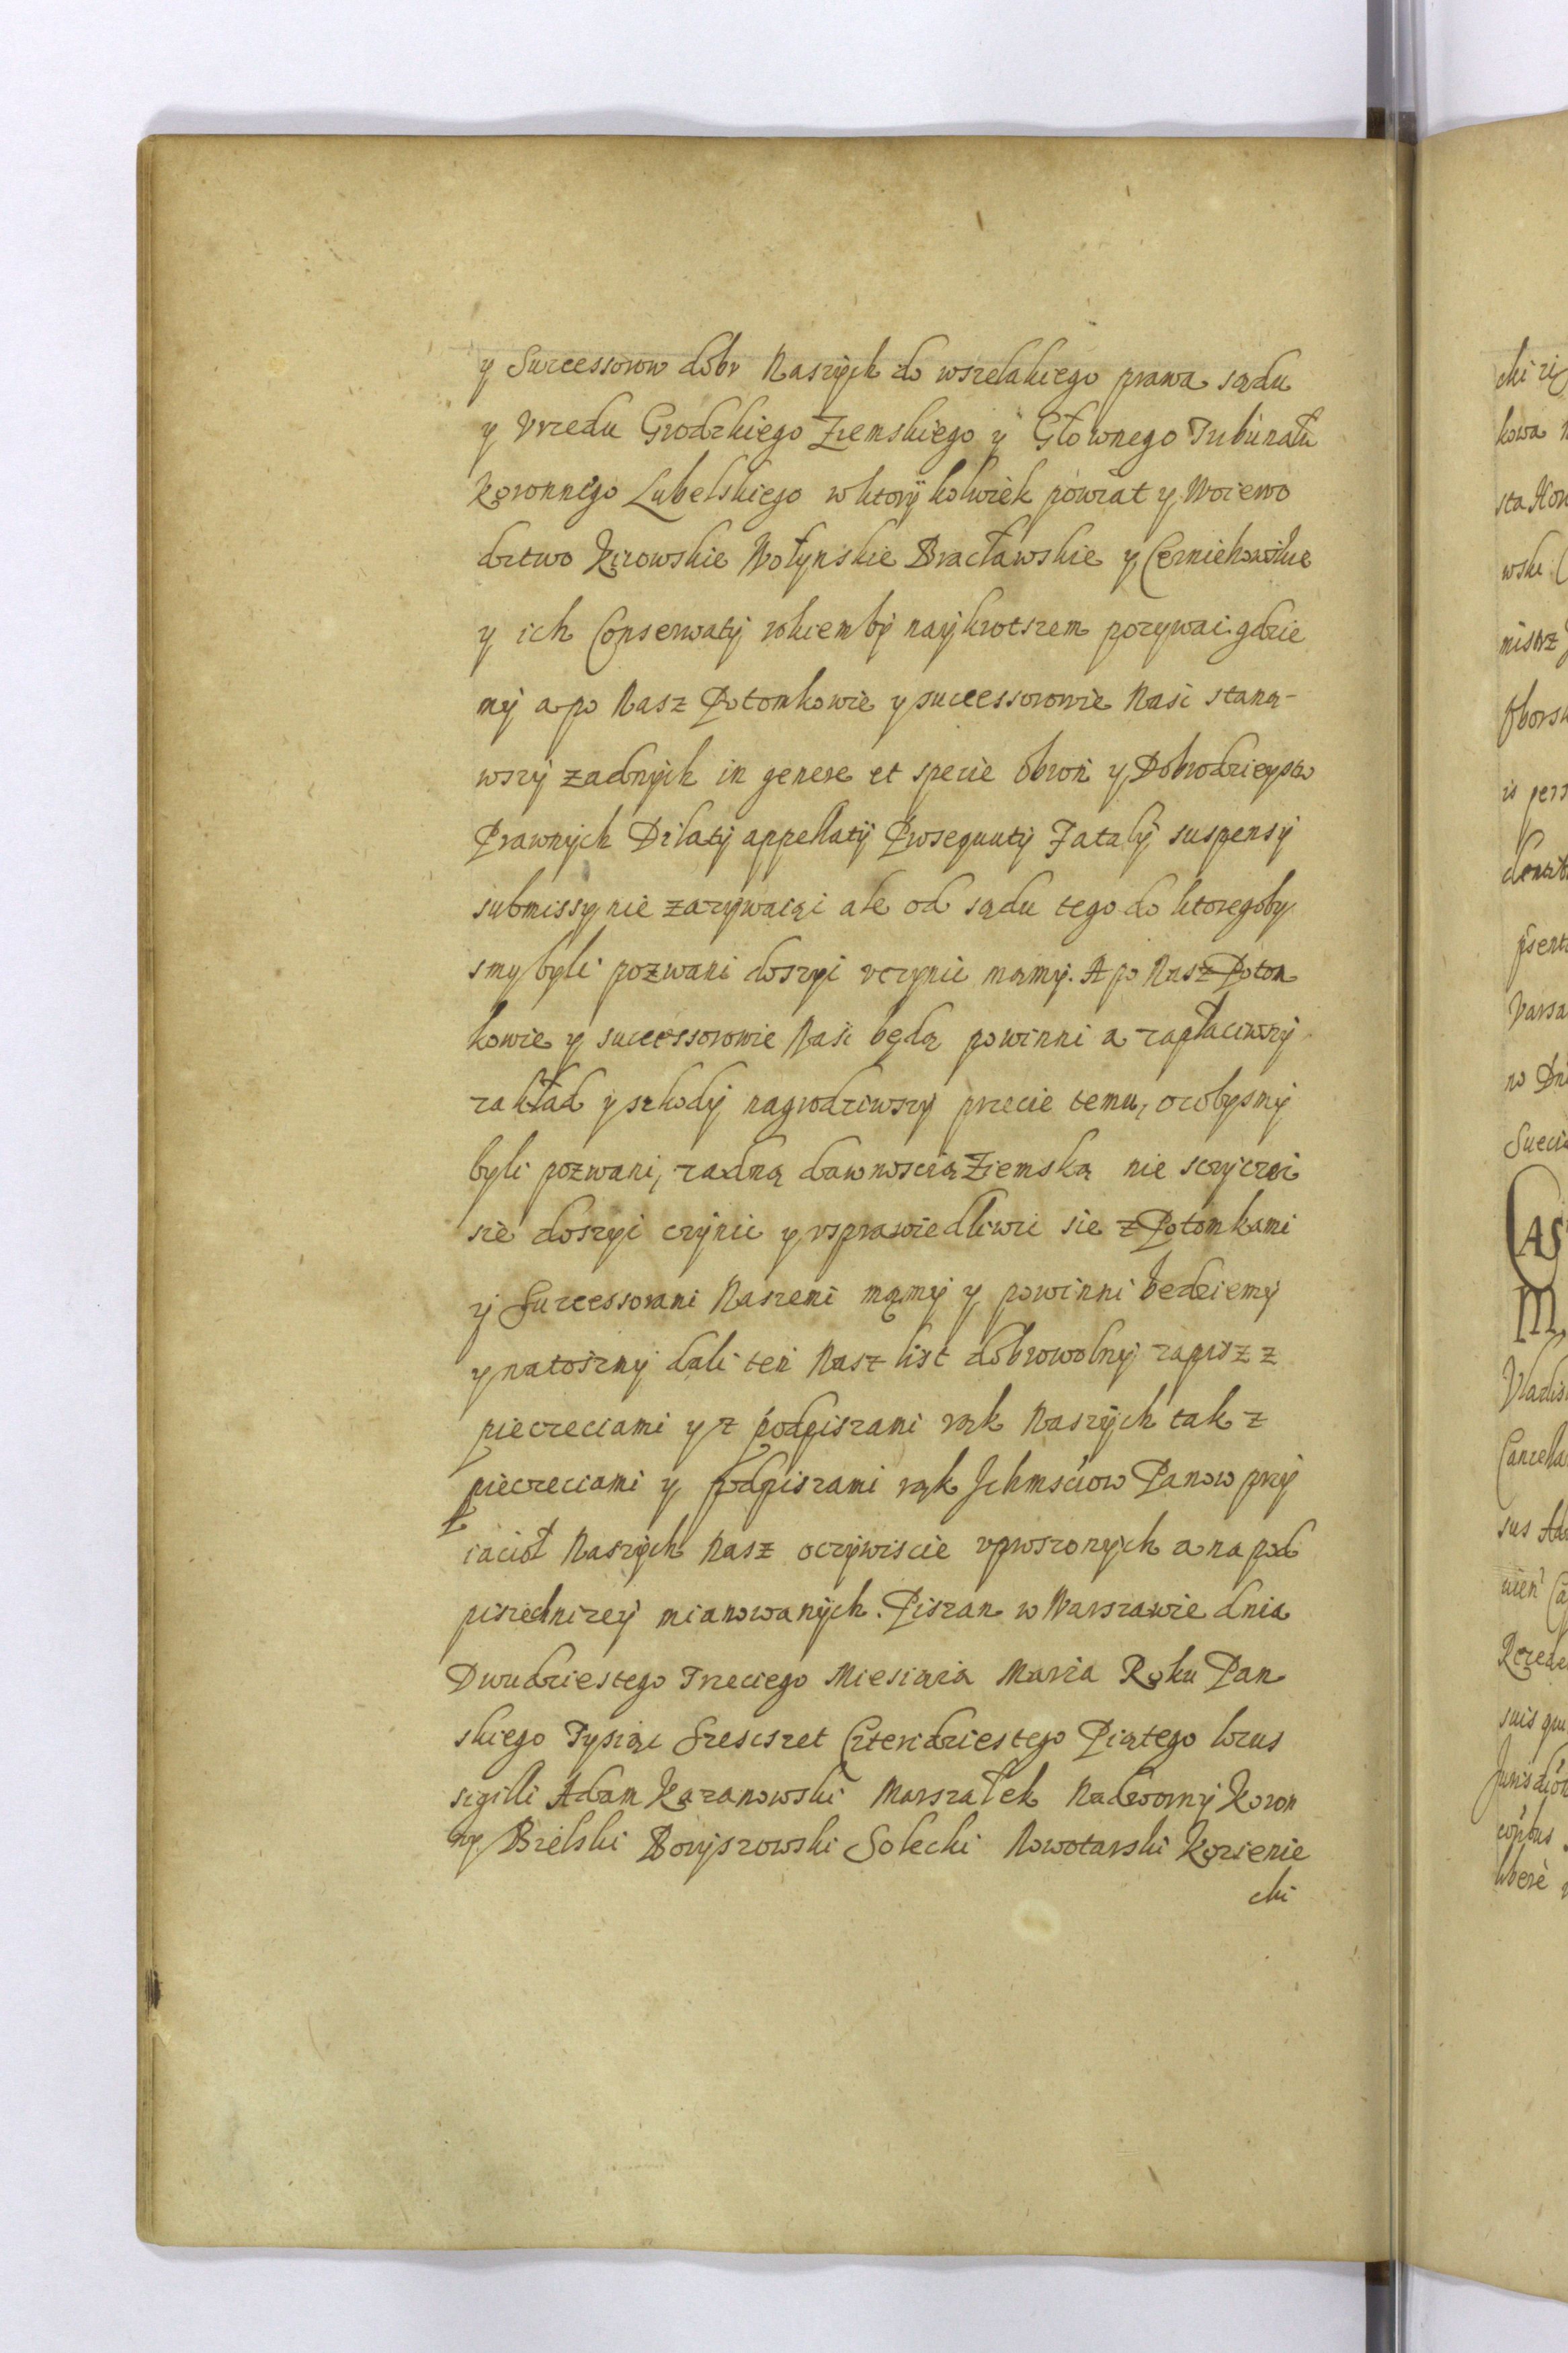 y Successorow dobr Naszych do wszelakiego prawa sądu
y Vrzedu Grodzkiego Ziemskiego y Głownego Tribunału
Koronnego Lubelskiego wktorykolwiek powiat y Woiewo
dztwo Kijowskie Wołynskie Bracławskie y Czerniehowskie
y ich Conserwaty rokiem by naykrotszem pozywac gdzie
my a po Nasz Potomkowie y successorowie Nasi staną-
wszy zadnych in genere et specie obron y Dobrodzieystw
Prawnych Dilaty appellaty Prosequuty Fataly suspensy
submissy nie zazywaiąc ale od sądu tego do ktoregoby
smy byli pozwani dosyc vczynic mamy. A po Nasz Potom
kowie y successorowie Nasi będą powinni a zapłaciwszy
zakład y szkody nagrodziwszy przecie temu, ocobysmy
byli pozwani, zadną dawnoscią Ziemską nie sczyczac
sie dosyc czynic y vsprawiedliwic sie z Potomkami
y Successorami Naszemi mamy y powinni bedziemy
y natoszmy dali ten Nasz list dobrowolny zapis z z
pieczeciami y z podpiszami rąk Naszych tak z
pieczeciami y z podpiszami rąk Ichmsciow Panow przy
iacioł Naszych Nasz oczywiscie vproszonych a na pod
piszednizey mianowanych. Piszan w Warszawie dnia
Dwudziestego Trzeciego Miesiąca Marca Roku Pan
skiego Tysiąc Szescszet Czterdziestego Piątego locus
sigilli Adam Kazanowski Marszałek Nadworny Koron
ny Bielski Boryszowski Solecki Nowotarski Kozienie
cki

cki
kowa
sta
wski
mistrz
Oborsk
is pers
Varsa
no Dni
Sueci
CAS
M
Vladis
Cancella
sus
suis
Jurisdic
libere